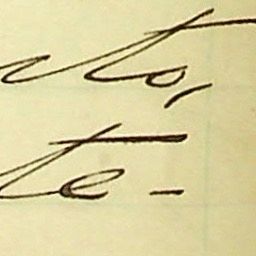 cto,
te-